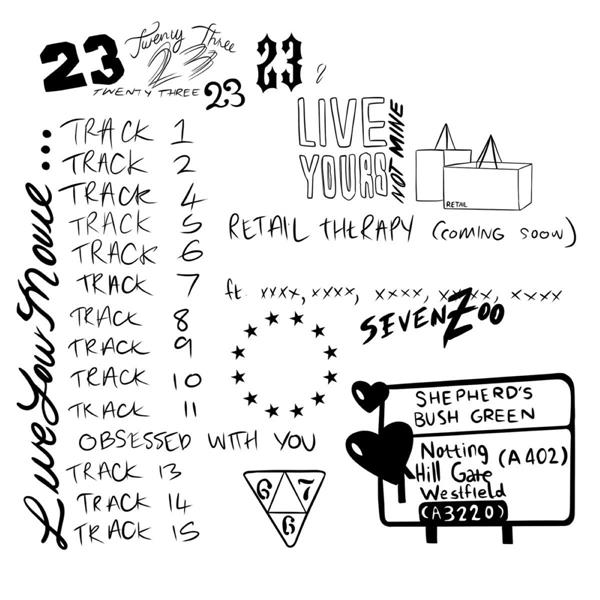 23
Twenty Three
23
TWENTY THREE
23
23
LIVE
YOURS
NOT MINE
RETAIL
Live Your Movie...
TRACK 1
TRACK 2
TRACK 4
TRACK 5
TRACK 6
TRACK 7
TRACK 8
TRACK 9
TRACK 10
TRACK 11
OBSESSED WITH YOU
TRACK 13
TRACK 14
TRACK 15
RETAIL THERAPY (COMING SOON)
ft. xxxx, xxxx, xxxx, xxxx, xxxx
SEVENZOO
SHEPHERD'S
BUSH GREEN
Notting
Hill Gate
(A402)
Westfield
(A3220)
6 7
6